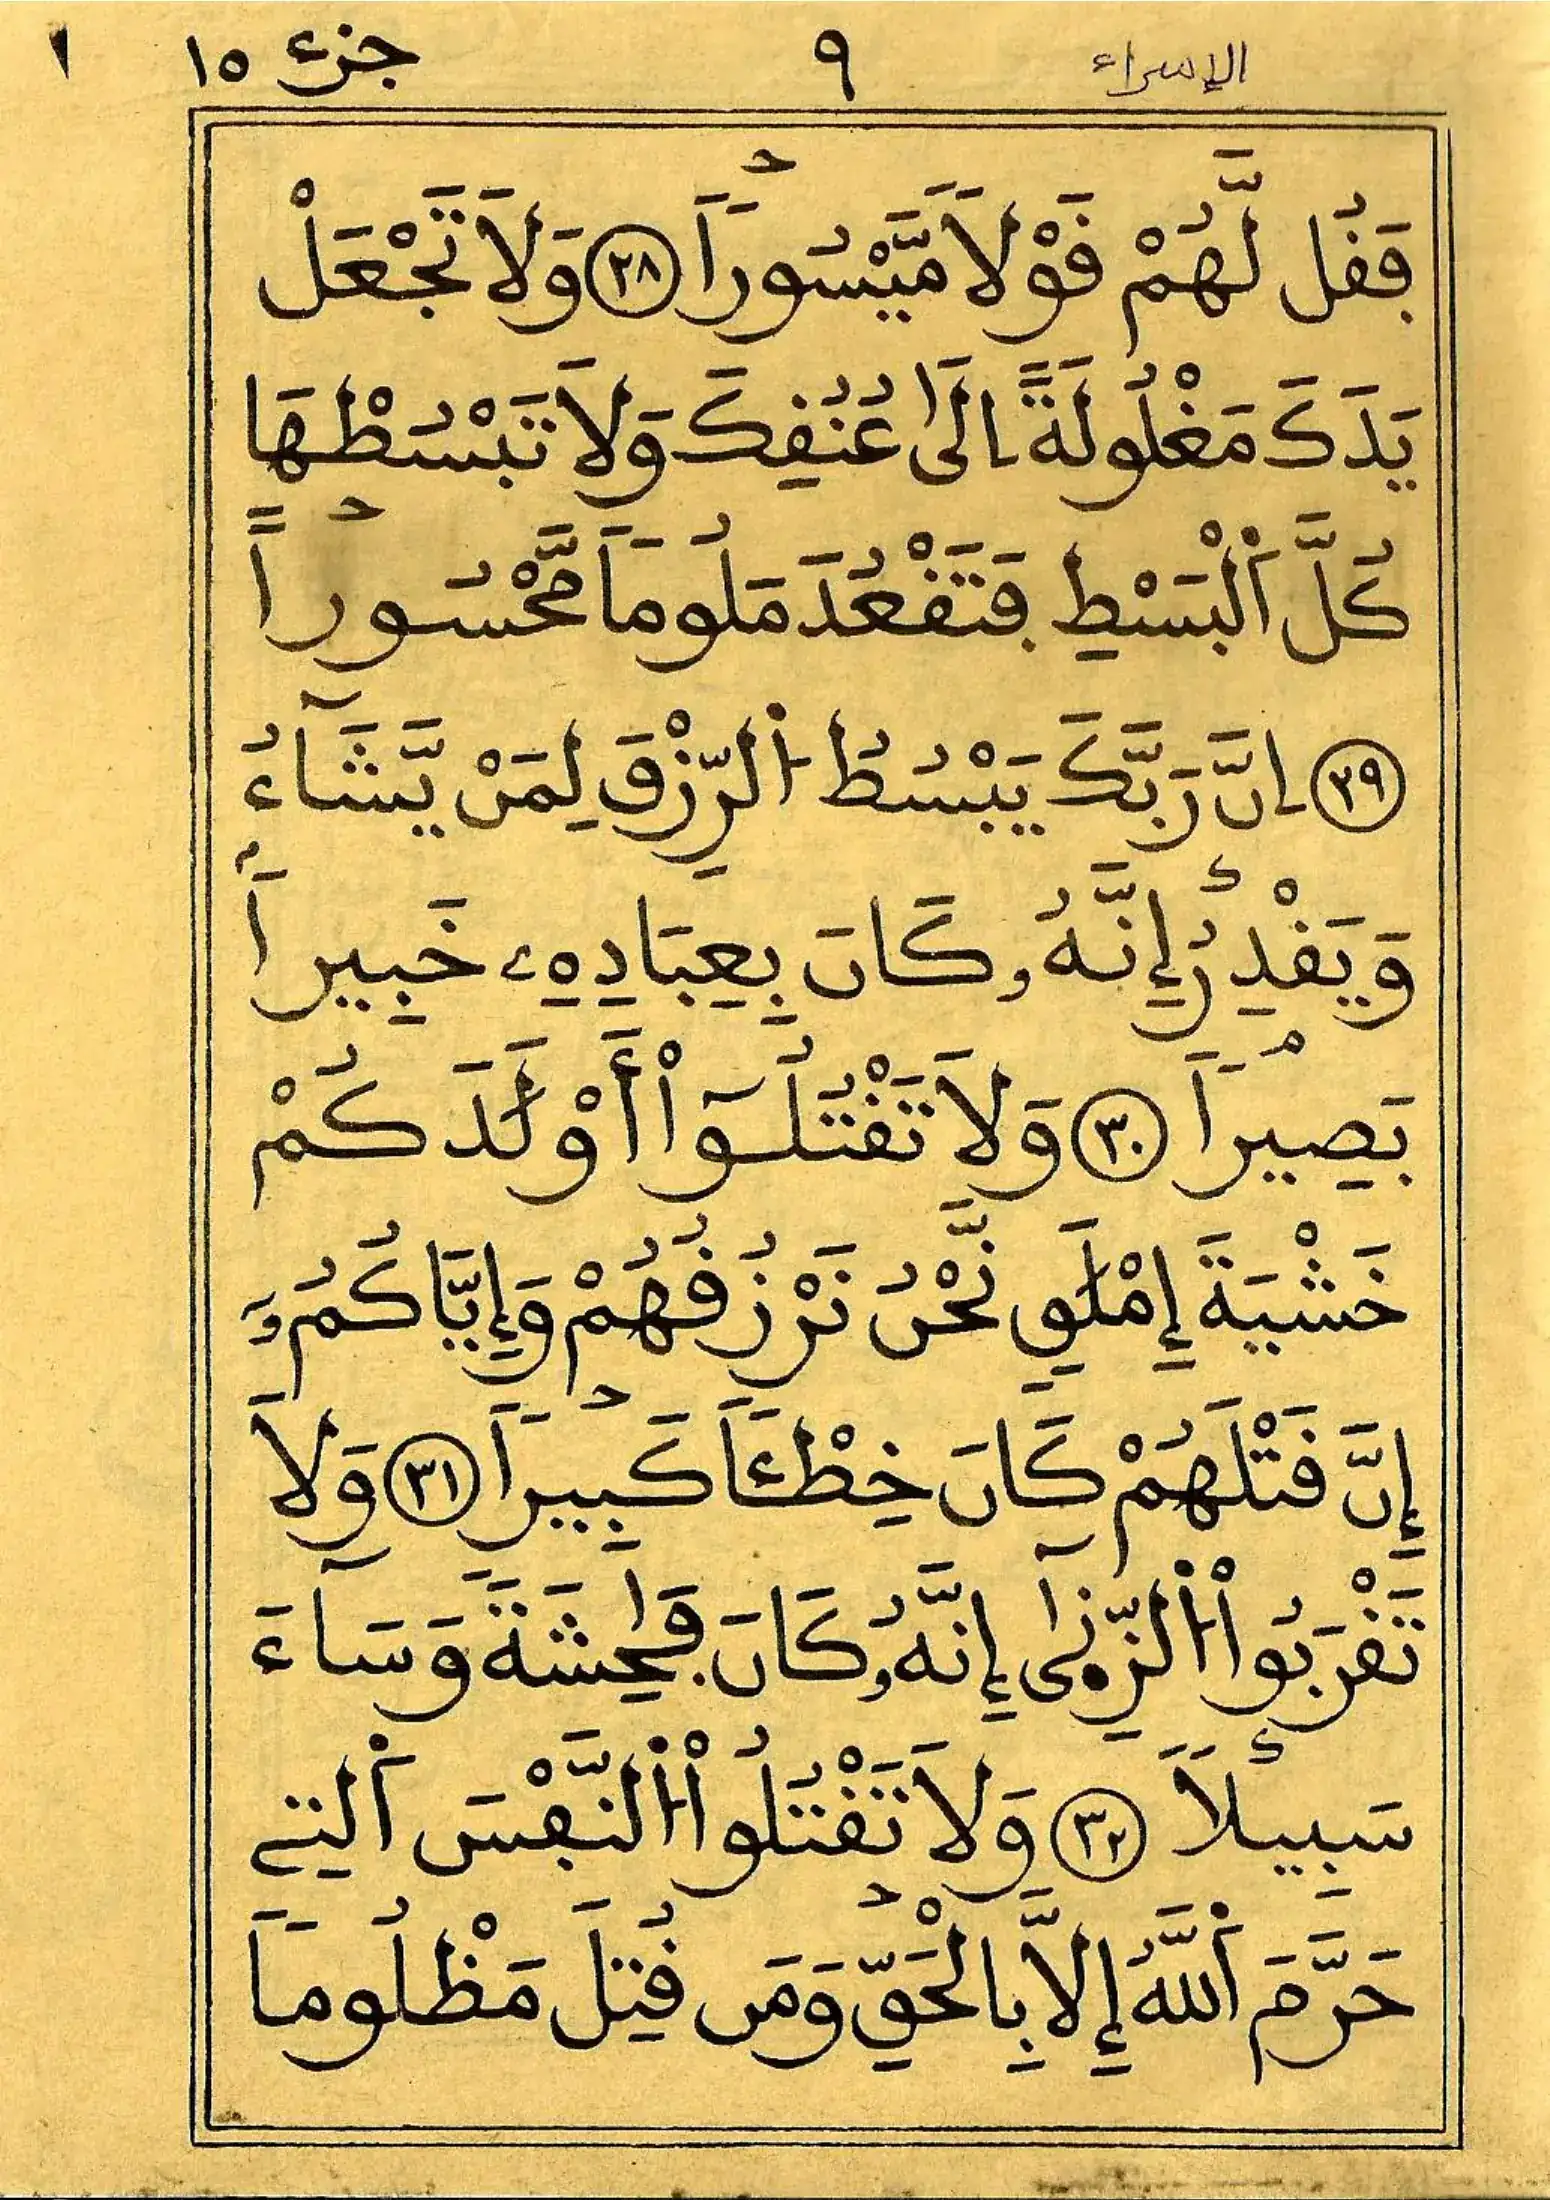 الإسراء ٩ جزء ١٥
فَقُل لَّهُمْ قَوْلاً مَّيْسُوراً ٢٨ وَلاَ تَجْعَلْ
يَدَكَ مَغْلُولَةً اِلَىٰ عُنُقِكَ وَلاَ تَبْسُطْهَا
كُلَّ اَ۬لْبَسْطِ فَتَقْعُدَ مَلُوماً مَّحْسُوراً
٢٩ اِنَّ رَبَّكَ يَبْسُطُ اُ۬لرِّزْقَ لِمَنْ يَّشَآءُ
وَيَقْدِرُ إِنَّهُۥ كَانَ بِعِبَادِهِۦ خَبِيراً
بَصِيراً ٣٠ وَلاَ تَقْتُلُوٓاْ أَوْلَٰدَكُمْ
خَشْيَةَ إِمْلَٰقٍ نَّحْنُ نَرْزُقُهُمْ وَإِيَّاكُمُۥٓ
إِنَّ قَتْلَهُمْ كَانَ خِطْـَٔاً كَبِيراً ٣١ وَلاَ
تَقْرَبُواْ اُ۬لزِّنَىٰٓ إِنَّهُۥ كَانَ فَٰحِشَةً وَسَآءَ
سَبِيلاً ٣٢ وَلاَ تَقْتُلُواْ اُ۬لنَّفْسَ اَ۬لتِے
حَرَّمَ اَ۬للَّهُ إِلاَّ بِالْحَقِّ وَمَن قُتِلَ مَظْلُوماً